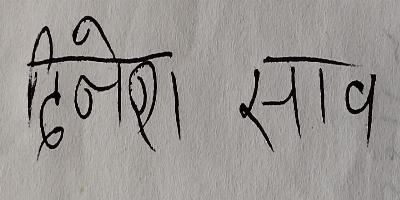 दिनेश साव